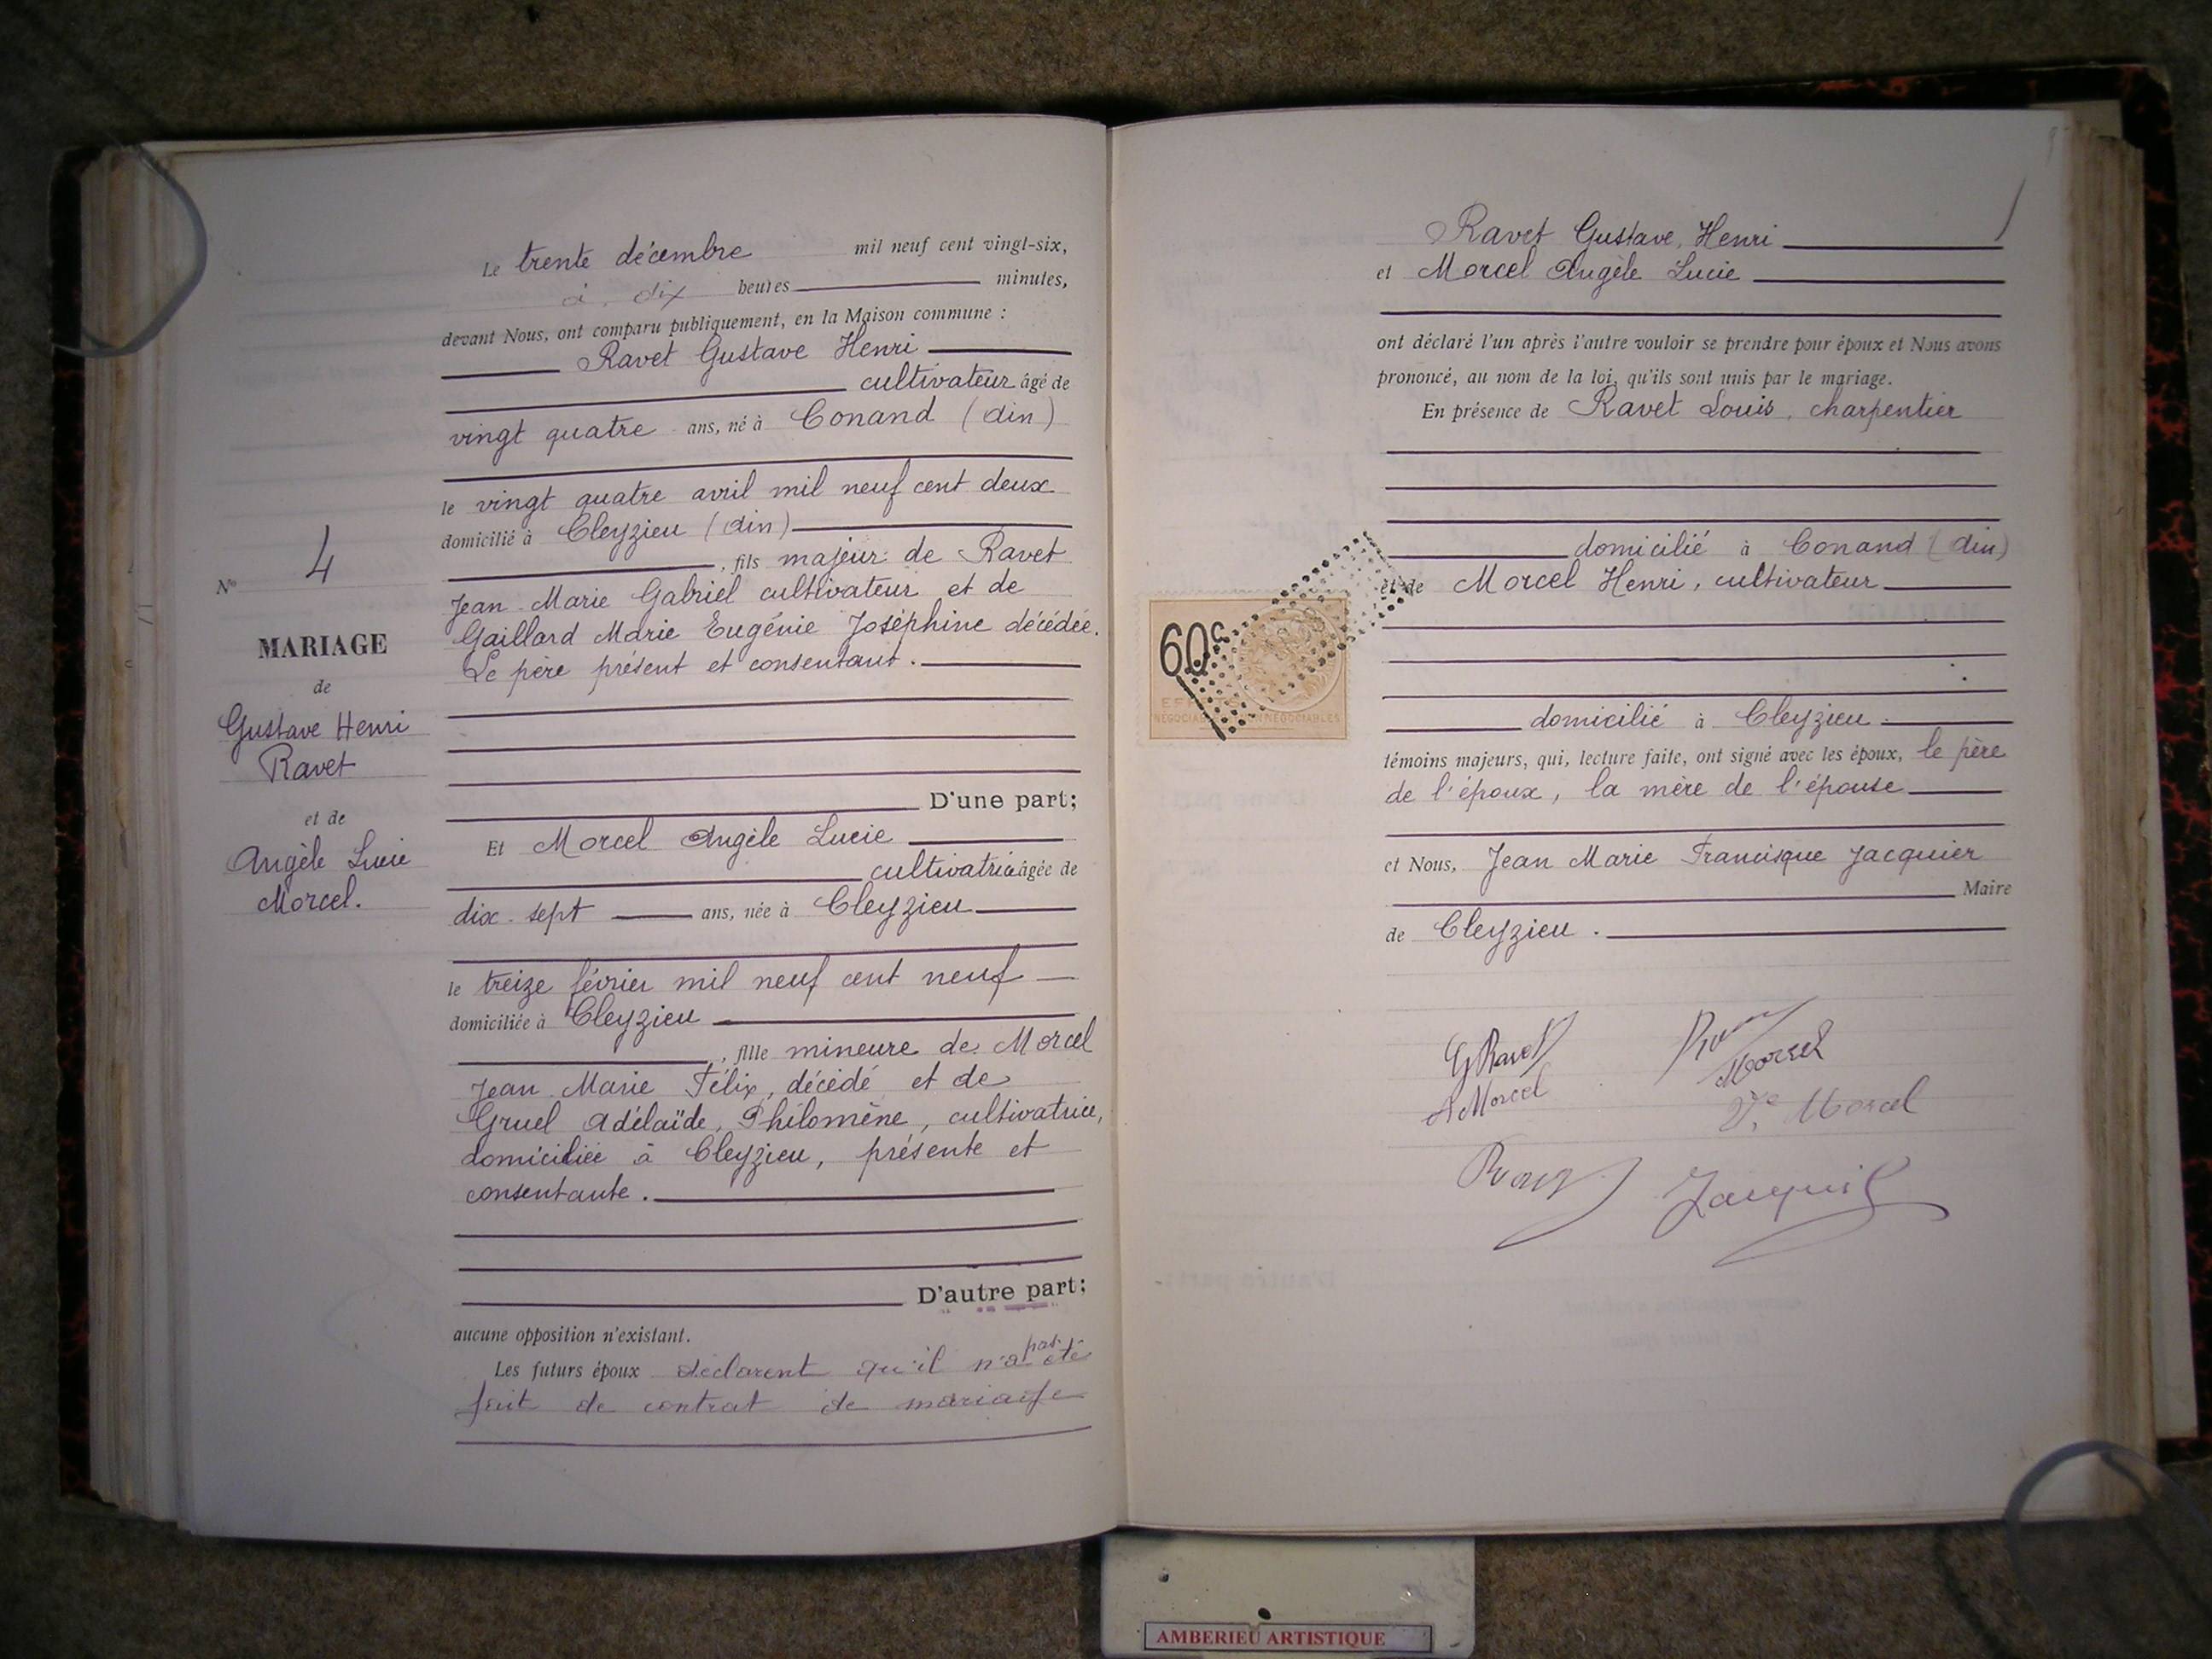 Le trente décembre mil neuf cent vingt-six,
à dix heures minutes,
devant Nous, ont comparu publiquement, en la Maison commune :
Ravet Gustave Henri
cultivateur âgé de
vingt quatre ans, né à Conand (Ain)
le vingt quatre avril mil neuf cent deux
domicilié à Cleyzieu (Ain)
, fils majeur de Ravet
Jean-Marie Gabriel cultivateur et de
Gaillard Marie Eugénie Joséphine décédée.
Le père présent et consentant.
D'une part;
Et Morcel Angèle Lucie
cultivatrice âgée de
dix-sept ans, née à Cleyzieu
le treize février mil neuf cent neuf
domiciliée à Cleyzieu
, fille mineure de Morcel
Jean Marie Félix, décédé et de
Gruel Adélaïde, Philomène, cultivatrice,
domiciliée à Cleyzieu, présente et
consentante.
D'autre part;
aucune opposition n'existant.
Les futurs époux déclarent qu'il n'a pas été
fait de contrat de mariage
No 4
MARIAGE
de
Gustave Henri
Ravet
et de
Angèle Lucie
Morcel.
Ravet Gustave, Henri
et Morcel Angèle Lucie
ont déclaré l'un après l'autre vouloir se prendre pour époux et Nous avons
prononcé, au nom de la loi, qu'ils sont unis par le mariage.
En présence de Ravet Louis, charpentier
domicilié à Conand (Ain)
et de Morcel Henri, cultivateur
domicilié à Cleyzieu.
témoins majeurs, qui, lecture faite, ont signé avec les époux, le père
de l'époux, la mère de l'épouse
et Nous, Jean Marie Francisque Jacquier
Maire
de Cleyzieu.
60c
G Ravet
Morcel
A Morcel
Ve Morcel
Jacquier
AMBERIEU ARTISTIQUE